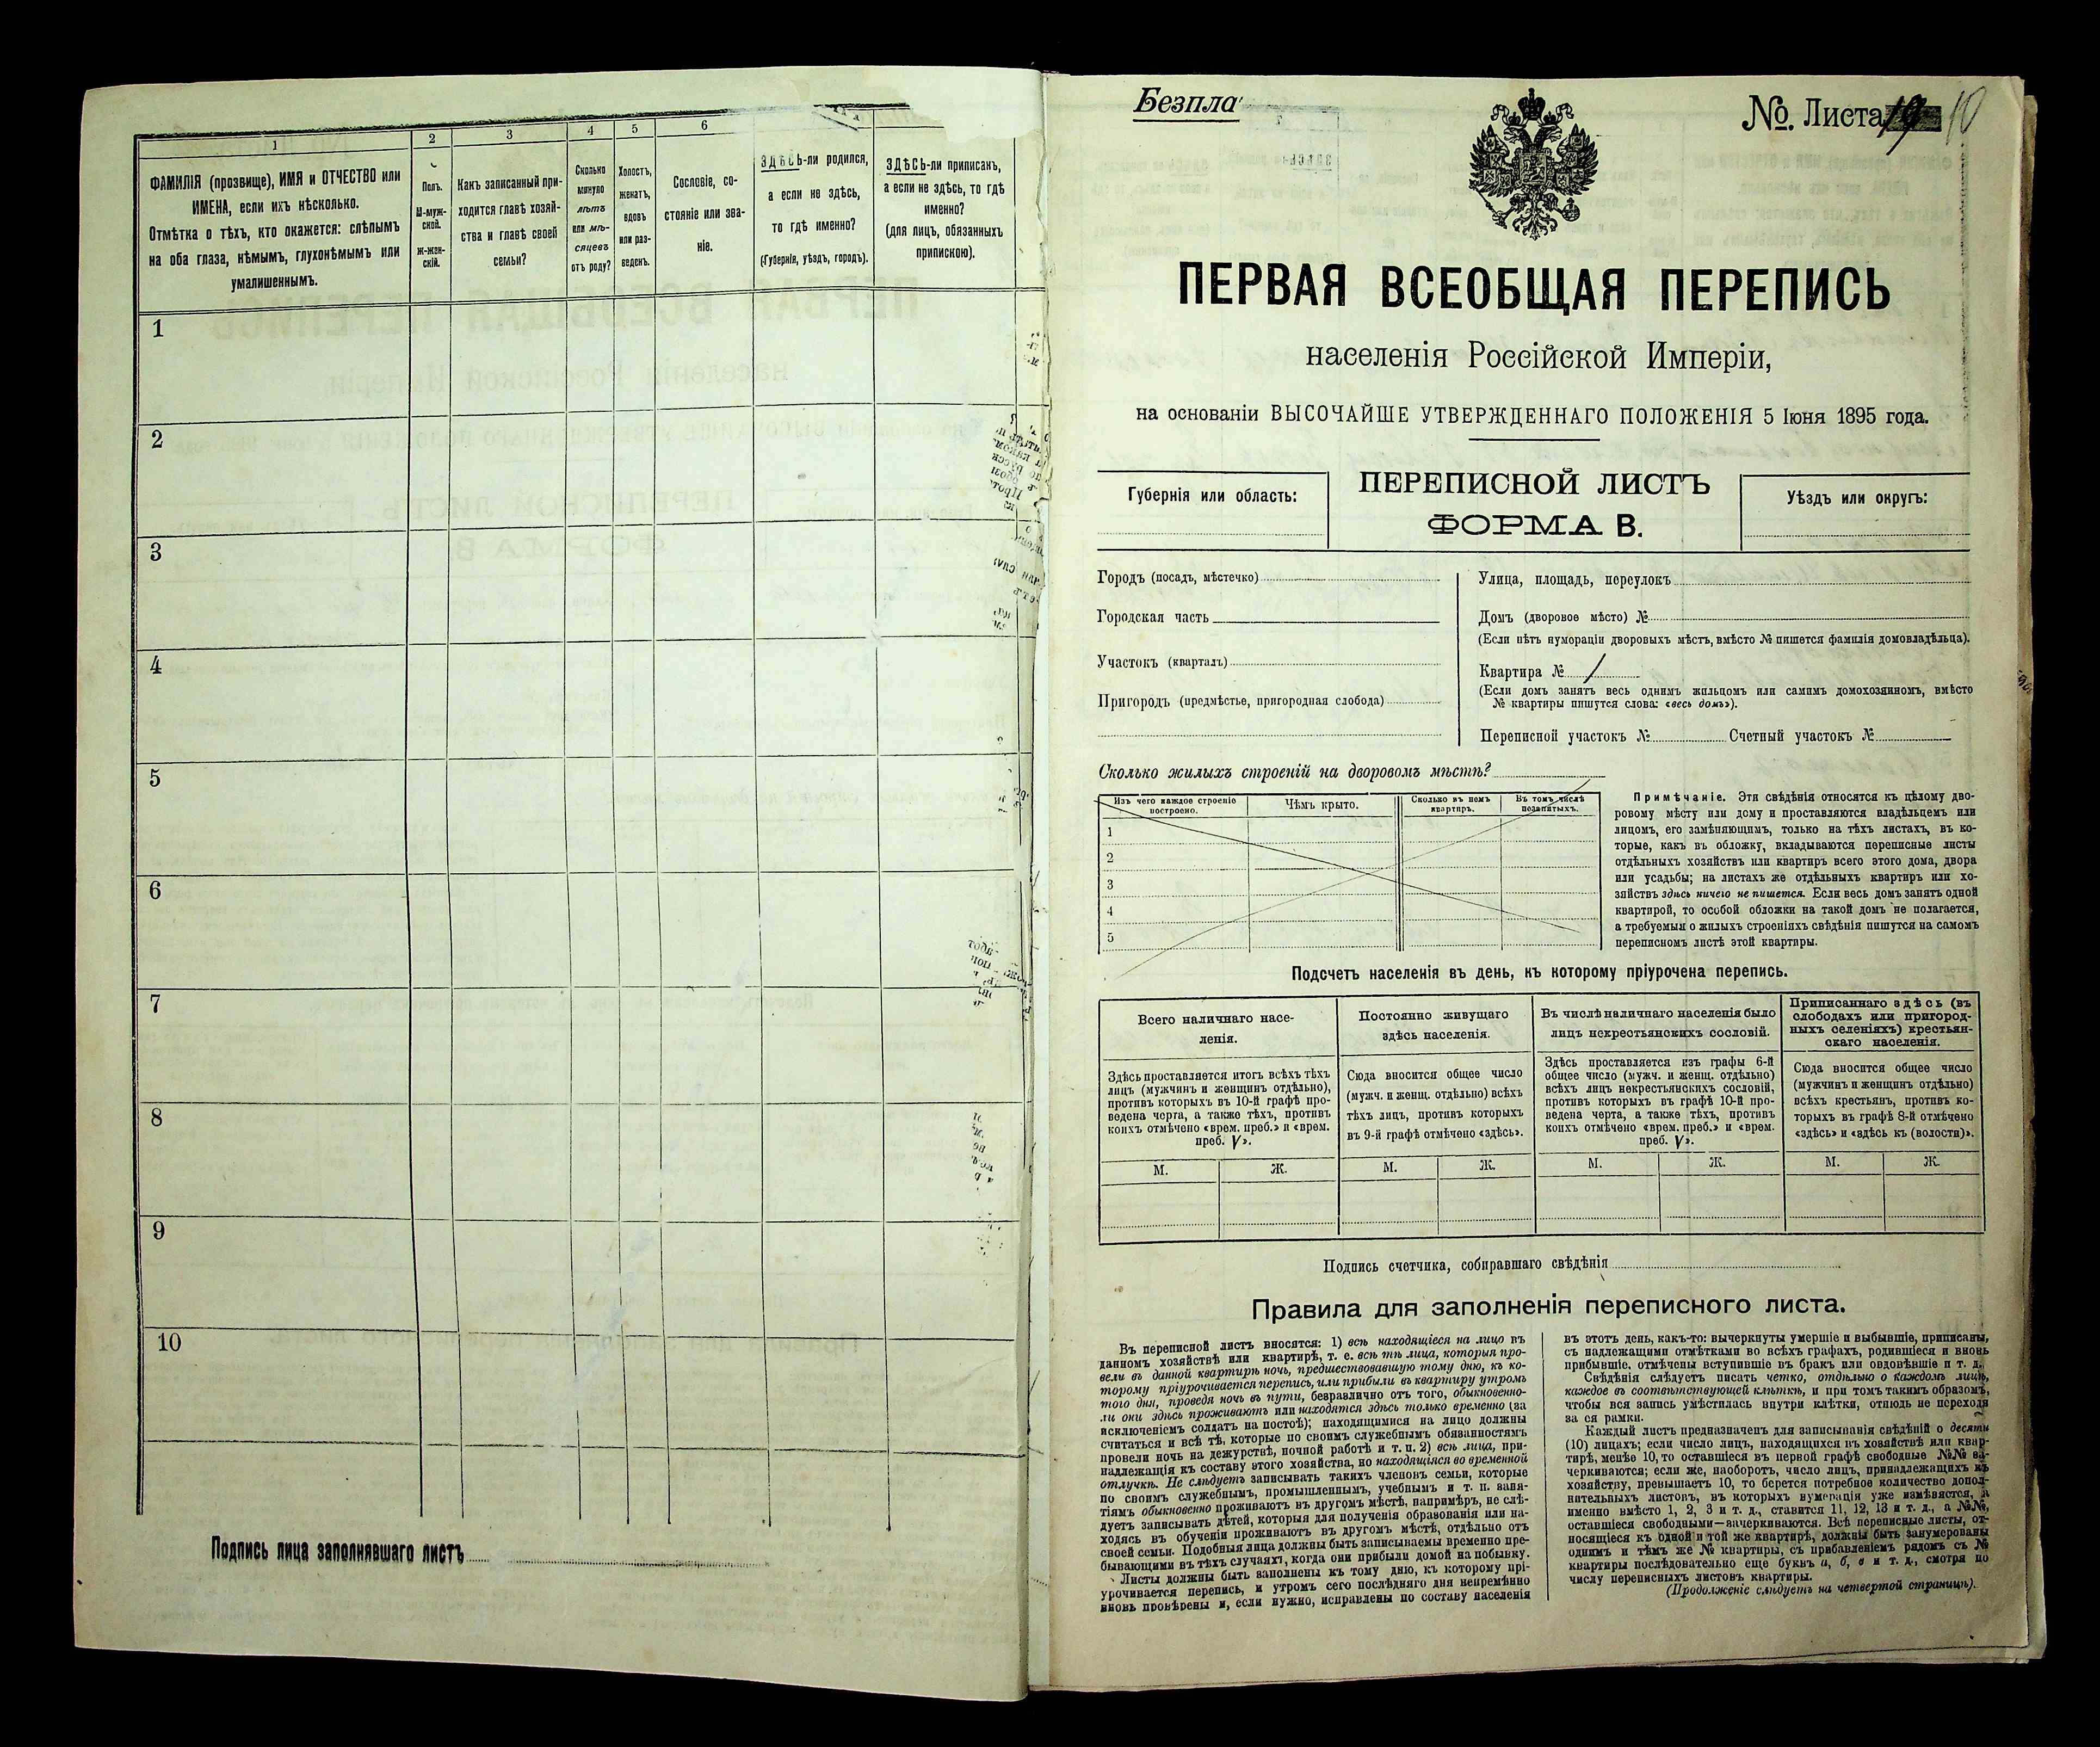 1
2
3
4
5
6
ФАМИЛІЯ (прозвище), ИМЯ и ОТЧЕСТВО или
ИМЕНА, если ихъ нѣсколько.
Отмѣтка о тѣхъ, кто окажется: слѣпымъ
на оба глаза, нѣмымъ, глухонѣмымъ или
умалишеннымъ.
Полъ.
М-муж-
ской.
Ж-жен-
скій.
Какъ записанный при-
ходится главѣ хозяй-
ства и главѣ своей
семьи?
Сколько
минуло
лѣтъ
или мѣ-
сяцевъ
отъ роду?
Холостъ,
женатъ,
вдовъ
или раз-
веденъ.
Сословіе, со-
стояніе или зва-
ніе.
ЗДѢСЬ-ли родился,
а если не здѣсь,
то гдѣ именно?
(Губернія, уѣздъ, городъ).
ЗДѢСЬ-ли приписанъ,
а если не здѣсь, то гдѣ
именно?
(для лицъ, обязанныхъ
припискою).
1
2
3
4
5
6
7
8
9
10
Подпись лица заполнявшаго листъ
Безпла
№. Листа 19 10
ПЕРВАЯ ВСЕОБЩАЯ ПЕРЕПИСЬ
населенія Россійской Имперіи,
на основаніи ВЫСОЧАЙШЕ УТВЕРЖДЕННАГО ПОЛОЖЕНІЯ 5 Іюня 1895 года.
Губернія или область:
ПЕРЕПИСНОЙ ЛИСТЪ
ФОРМА В.
Уѣздъ или округъ:
Городъ (посадъ, мѣстечко)
Городская часть
Участокъ (кварталъ)
Пригородъ (предмѣстье, пригородная слобода)
Улица, площадь, переулокъ
Домъ (дворовое мѣсто) №
(Если нѣтъ нумораціи дворовыхъ мѣстъ, вмѣсто № пишется фамилія домовладѣльца).
Квартира № 1
(Если домъ занятъ весь однимъ жильцомъ или самимъ домохозяиномъ, вмѣсто
№ квартиры пишутся слова: «весь домъ»).
Переписной участокъ № Счетный участокъ №
Сколько жилыхъ строеній на дворовомъ мѣстѣ?
Изъ чего каждое строеніе
построено.
Чѣмъ крыто.
Сколько въ немъ
квартиръ.
Въ томъ числѣ
незанятыхъ.
1
2
3
4
5
Примѣчаніе. Эти свѣдѣнія относятся къ цѣлому дво-
ровому мѣсту или дому и проставляются владѣльцемъ или
лицомъ, его замѣняющимъ, только на тѣхъ листахъ, въ ко-
торые, какъ въ обложку, вкладываются переписные листы
отдѣльныхъ хозяйствъ или квартиръ всего этого дома, двора
или усадьбы; на листахъ же отдѣльныхъ квартиръ или хо-
зяйствъ здѣсь ничего не пишется. Если весь домъ занятъ одной
квартирой, то особой обложки на такой домъ не полагается,
а требуемыя о жилыхъ строеніяхъ свѣдѣнія пишутся на самомъ
переписномъ листѣ этой квартиры.
Подсчетъ населенія въ день, къ которому пріурочена перепись.
Всего наличнаго насе-
ленія.
Постоянно живущаго
здѣсь населенія.
Въ числѣ наличнаго населенія было
лицъ некрестьянскихъ сословій.
Приписаннаго здѣсь (въ
слободахъ или пригород-
ныхъ селеніяхъ) крестьян-
скаго населенія.
Здѣсь проставляется итогъ всѣхъ тѣхъ
лицъ (мужчинъ и женщинъ отдѣльно),
противъ которыхъ въ 10-й графѣ про-
ведена черта, а также тѣхъ, противъ
коихъ отмѣчено «врем. преб.» и «врем.
преб. V».
Сюда вносится общее число
(мужч. и женщ. отдѣльно) всѣхъ
тѣхъ лицъ, противъ которыхъ
въ 9-й графѣ отмѣчено «здѣсь».
Здѣсь проставляется изъ графы 6-й
общее число (мужч. и женщ. отдѣльно)
всѣхъ лицъ некрестьянскихъ сословій,
противъ которыхъ въ графѣ 10-й про-
ведена черта, а также тѣхъ, противъ
коихъ отмѣчено «врем. преб.» и «врем.
преб. V».
Сюда вносится общее число
(мужчинъ и женщинъ отдѣльно)
всѣхъ крестьянъ, противъ ко-
торыхъ въ графѣ 8-й отмѣчено
«здѣсь» и «здѣсь къ (волости)».
М. Ж. М. Ж. М. Ж. М. Ж.
Подпись счетчика, собиравшаго свѣдѣнія
Правила для заполненія переписного листа.
Въ переписной листъ вносятся: 1) всѣ находящіеся на лицо въ
данномъ хозяйствѣ или квартирѣ, т. е. всѣ тѣ лица, которыя про-
вели въ данной квартирѣ ночь, предшествовавшую тому дню, къ ко-
торому пріурочивается перепись, или прибыли въ квартиру утромъ
того дня, проведя ночь въ пути, безразлично отъ того, обыкновенно-
ли они здѣсь проживаютъ или находятся здѣсь только временно (за
исключеніемъ солдатъ на постоѣ); находящимися на лицо должны
считаться и всѣ тѣ, которые по своимъ служебнымъ обязанностямъ
провели ночь на дежурствѣ, ночной работѣ и т. п. 2) всѣ лица, при-
надлежащія къ составу этого хозяйства, но находящіяся во временной
отлучкѣ. Не слѣдуетъ записывать такихъ членовъ семьи, которые
по своимъ служебнымъ, промышленнымъ, учебнымъ и т. п. заня-
тіямъ обыкновенно проживаютъ въ другомъ мѣстѣ, напримѣръ, не слѣ-
дуетъ записывать дѣтей, которыя для полученія образованія или на-
ходясь въ обученіи проживаютъ въ другомъ мѣстѣ, отдѣльно отъ
своей семьи. Подобныя лица должны быть записываемы временно пре-
бывающими въ тѣхъ случаяхъ, когда они прибыли домой на побывку.
Листы должны быть заполнены къ тому дню, къ которому прі-
урочивается перепись, и утромъ сего послѣдняго дня непремѣнно
вновь провѣрены и, если нужно, исправлены по составу населенія
въ этотъ день, какъ-то: вычеркнуты умершіе и выбывшіе, приписаны,
съ надлежащими отмѣтками во всѣхъ графахъ, родившіеся и вновь
прибывшіе, отмѣчены вступившіе въ бракъ или овдовѣвшіе и т. д.
Свѣдѣнія слѣдуетъ писать четко, отдѣльно о каждомъ лицѣ,
каждое въ соотвѣтствующей клѣткѣ, и при томъ такимъ образомъ,
чтобы вся запись умѣстилась внутри клѣтки, отнюдь не переходя
за ея рамки.
Каждый листъ предназначенъ для записыванія свѣдѣній о десяти
(10) лицахъ; если число лицъ, находящихся въ хозяйствѣ или квар-
тирѣ, менѣе 10, то оставшіеся въ первой графѣ свободные №№ за-
черкиваются; если же, наоборотъ, число лицъ, принадлежащихъ къ
хозяйству, превышаетъ 10, то берется потребное количество допол-
нительныхъ листовъ, въ которыхъ нумерація уже измѣняется, а
именно вмѣсто 1, 2, 3 и т. д., ставится 11, 12, 13 и т. д., а №№,
оставшіеся свободными—зачеркиваются. Всѣ переписные листы, от-
носящіеся къ одной и той же квартирѣ, должны быть занумерованы
однимъ и тѣмъ же № квартиры, съ прибавленіемъ рядомъ съ №
квартиры послѣдовательно еще буквъ а, б, в и т. д., смотря по
числу переписныхъ листовъ квартиры.
(Продолженіе слѣдуетъ на четвертой страницѣ).